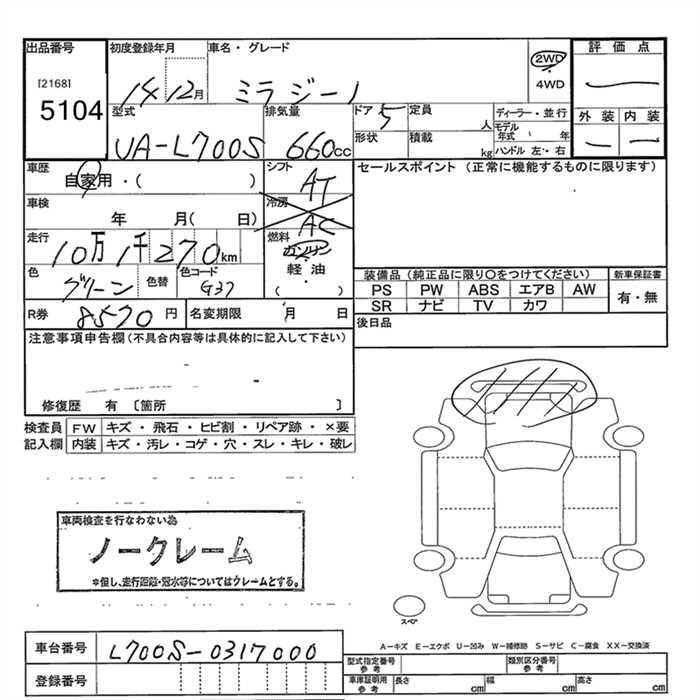 出品番号 初度登録年月 車名・グレード 2WD 評価点
[2168] 14 12月 ミラジーノ 4WD
5104 型式 排気量 ドア 5 定員 人 ディーラー・並行 外装 内装
UA-L700S 660cc 形状 積載 kg モデル年式 年
ハンドル 左・右
車歴 自家用・( ) シフト AT セールスポイント (正常に機能するものに限ります)
車検 年 月( 日) 冷房 AC
走行 10万1千270km 燃料 ガソリン
色 グリーン 色替 色コード G37 軽油 ( ・ )
装備品 (純正品に限り○をつけてください) 新車保証書
PS PW ABS エアB AW 有・無
SR ナビ TV カワ
R券 8570円 名変期限 月 日 後日品
注意事項申告欄(不具合内容等は具体的に記入して下さい)
修復歴 有 〔箇所 〕
検査員 FW キズ・飛石・ヒビ割・リペア跡・×要
記入欄 内装 キズ・汚レ・コゲ・穴・スレ・キレ・破レ
車両検査を行なわない為
ノークレーム
*但し、走行距離・冠水等についてはクレームとする。
スペア
A-キズ E-エクボ U-凹み W-補修跡 S-サビ C-腐食 XX-交換済
車台番号 L700S-0317000
登録番号
型式指定番号 参考 類別区分番号 参考
車庫証明用 参考 長さ cm 幅 cm 高さ cm